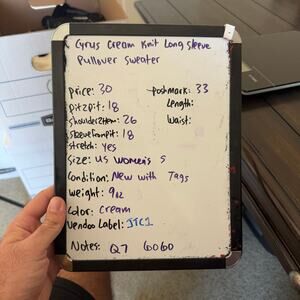 Gyrus Cream Knit Long Sleeve
Pullover Sweater
price: 30
poshmark: 33
pit2pit: 18
Length:
shoulder2Hem: 26
Waist:
sleevefrompit: 18
stretch: Yes
Size: US women's S
Condition: New with Tags
Weight: 9oz
Color: Cream
Vendoo Label: JTC1
Notes: Q7 6060